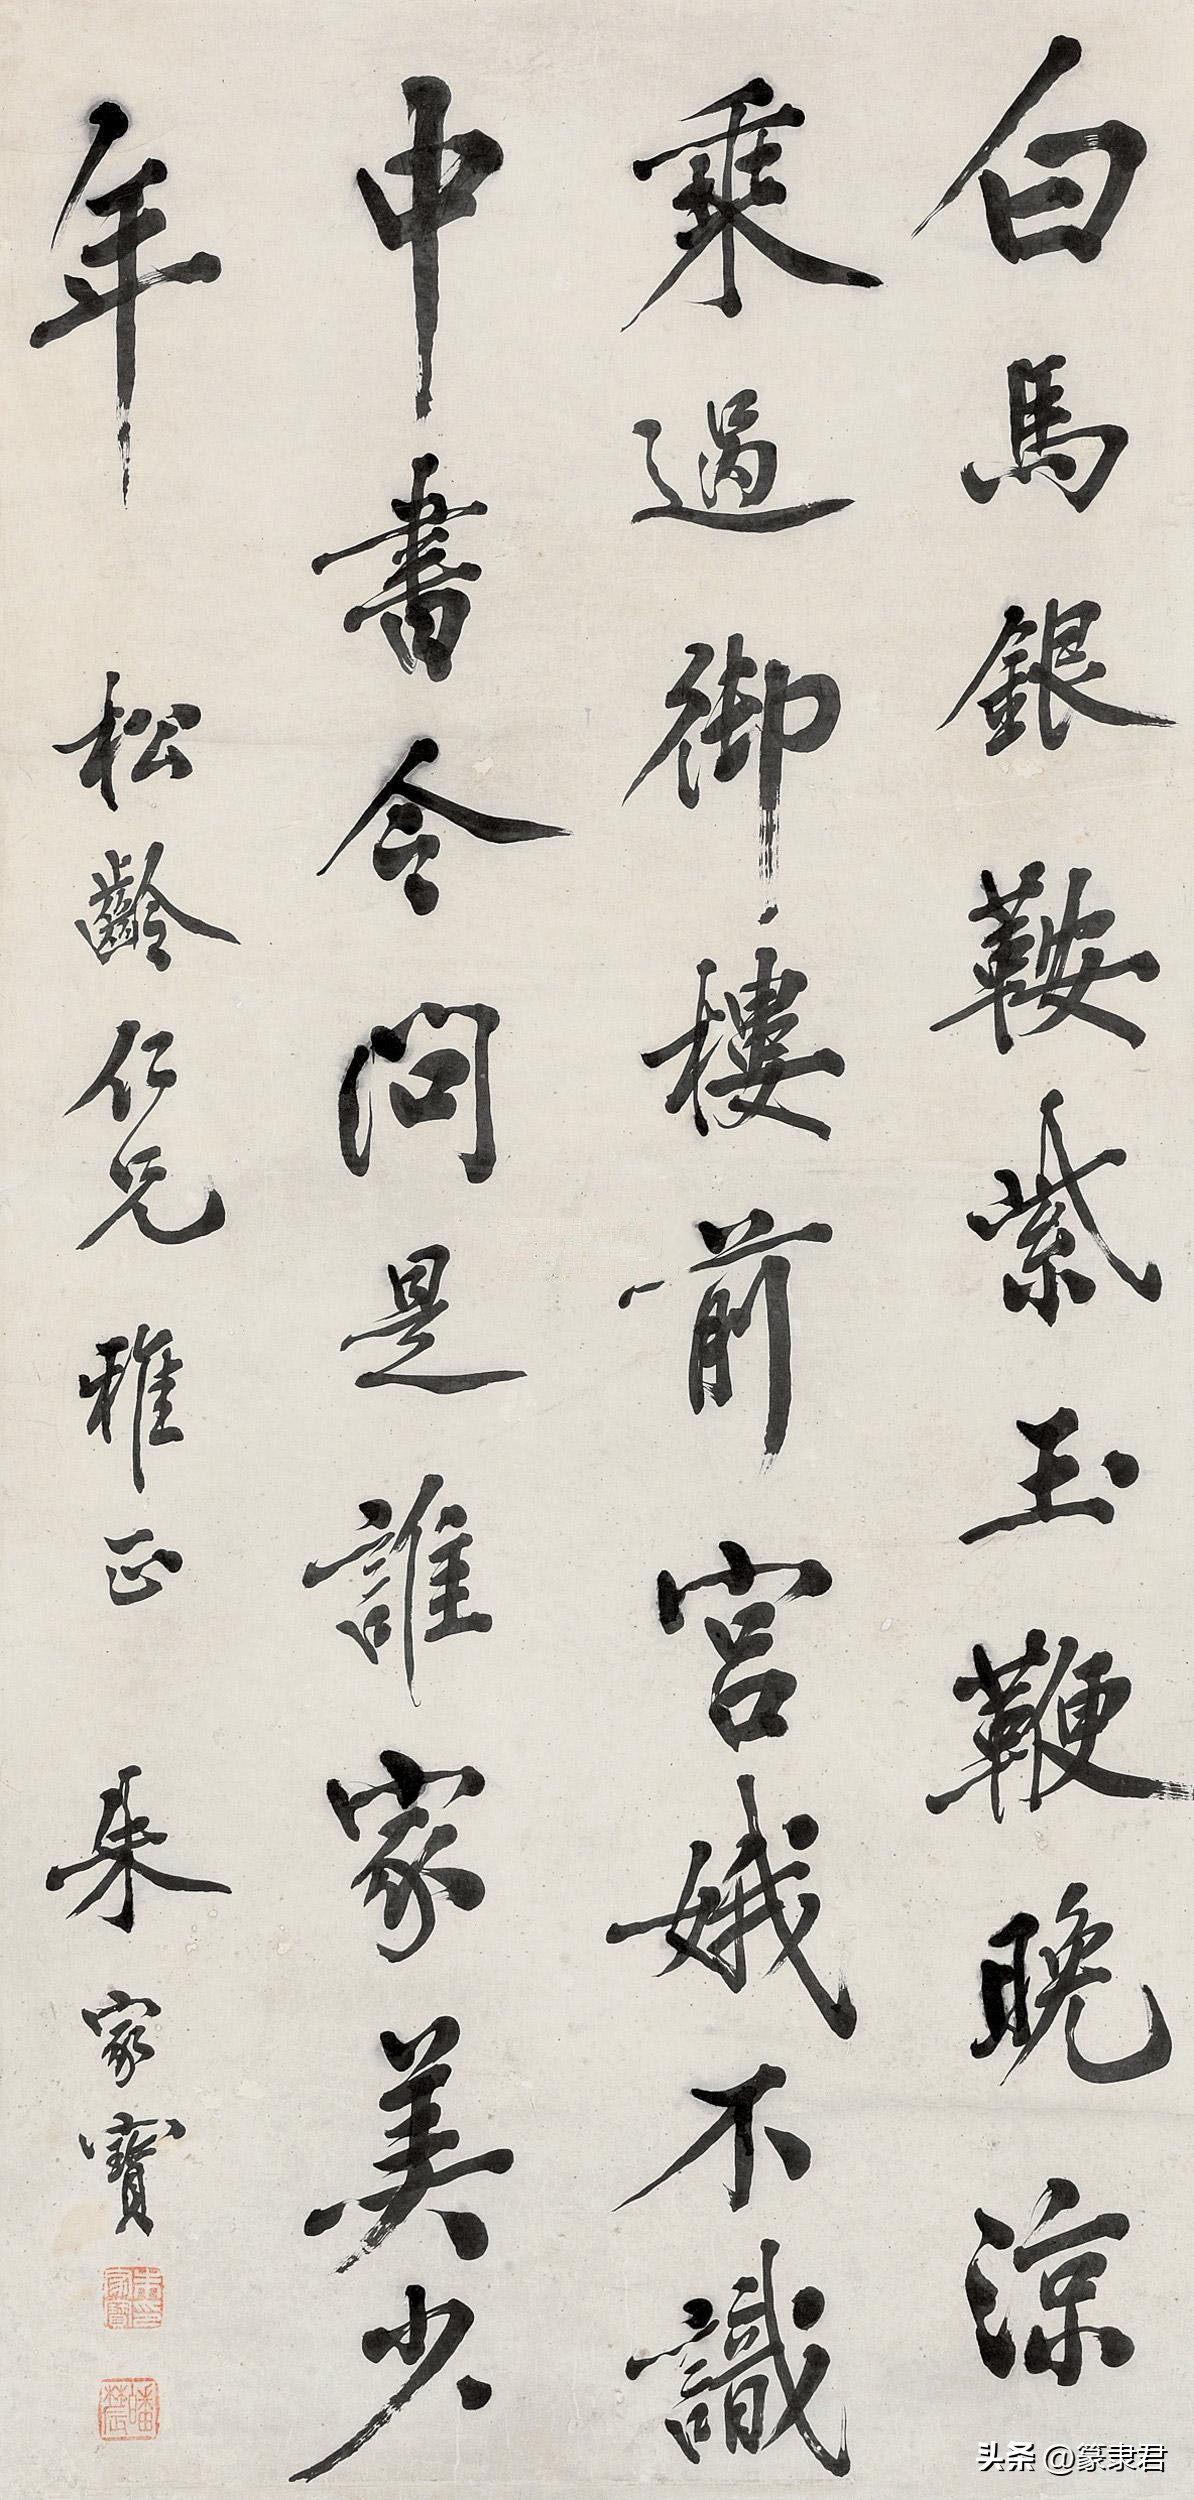 白馬銀鞍紫玉鞭晚涼
乘過御樓前宮娥不識
中書令問是誰家美少
年
松齡仁兄雅正 朱家寶
朱家寶印
頭条 @篆隶君